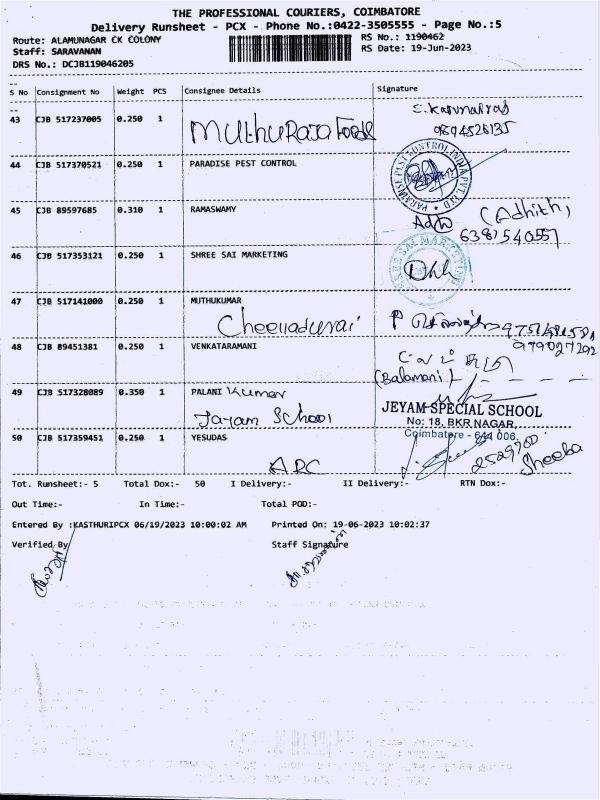 THE PROFESSIONAL COURIERS, COIMBATORE
Delivery Runsheet - PCX - Phone No.:0422-3505555 - Page No.:5
Route: ALAMUNAGAR CK COLONY
RS No.: 1190462
Staff: SARAVANAN
RS Date: 19-Jun-2023
DRS No.: DCJB119046205
S No Consignment No Weight PCS Consignee Details Signature
43 CJB 517237005 0.250 1 MUthuRaja Foods
9894526135
44 CJB 517370521 0.250 1 PARADISE PEST CONTROL
45 CJB 89597685 0.310 1 RAMASWAMY (Adhith,
6381540557
46 CJB 517353121 0.250 1 SHREE SAI MARKETING
SHREE SAI MARKETING
47 CJB 517141000 0.250 1 MUTHUKUMAR
Cheelladurai
48 CJB 89451381 0.250 1 VENKATARAMANI
(Balamani)
49 CJB 517328089 0.350 1 PALANI Kumar
Jayam School
JEYAM SPECIAL SCHOOL
No: 18, BKR NAGAR,
Coimbatore - 641 006.
50 CJB 517359451 0.250 1 YESUDAS
ARC
2529700
Sheeba
Tot. Runsheet:- 5 Total Dox:- 50 I Delivery:- II Delivery:- RTN Dox:-
Out Time:- In Time:- Total POD:-
Entered By :KASTHURIPCX 06/19/2023 10:00:02 AM Printed On: 19-06-2023 10:02:37
Verified By Staff Signature